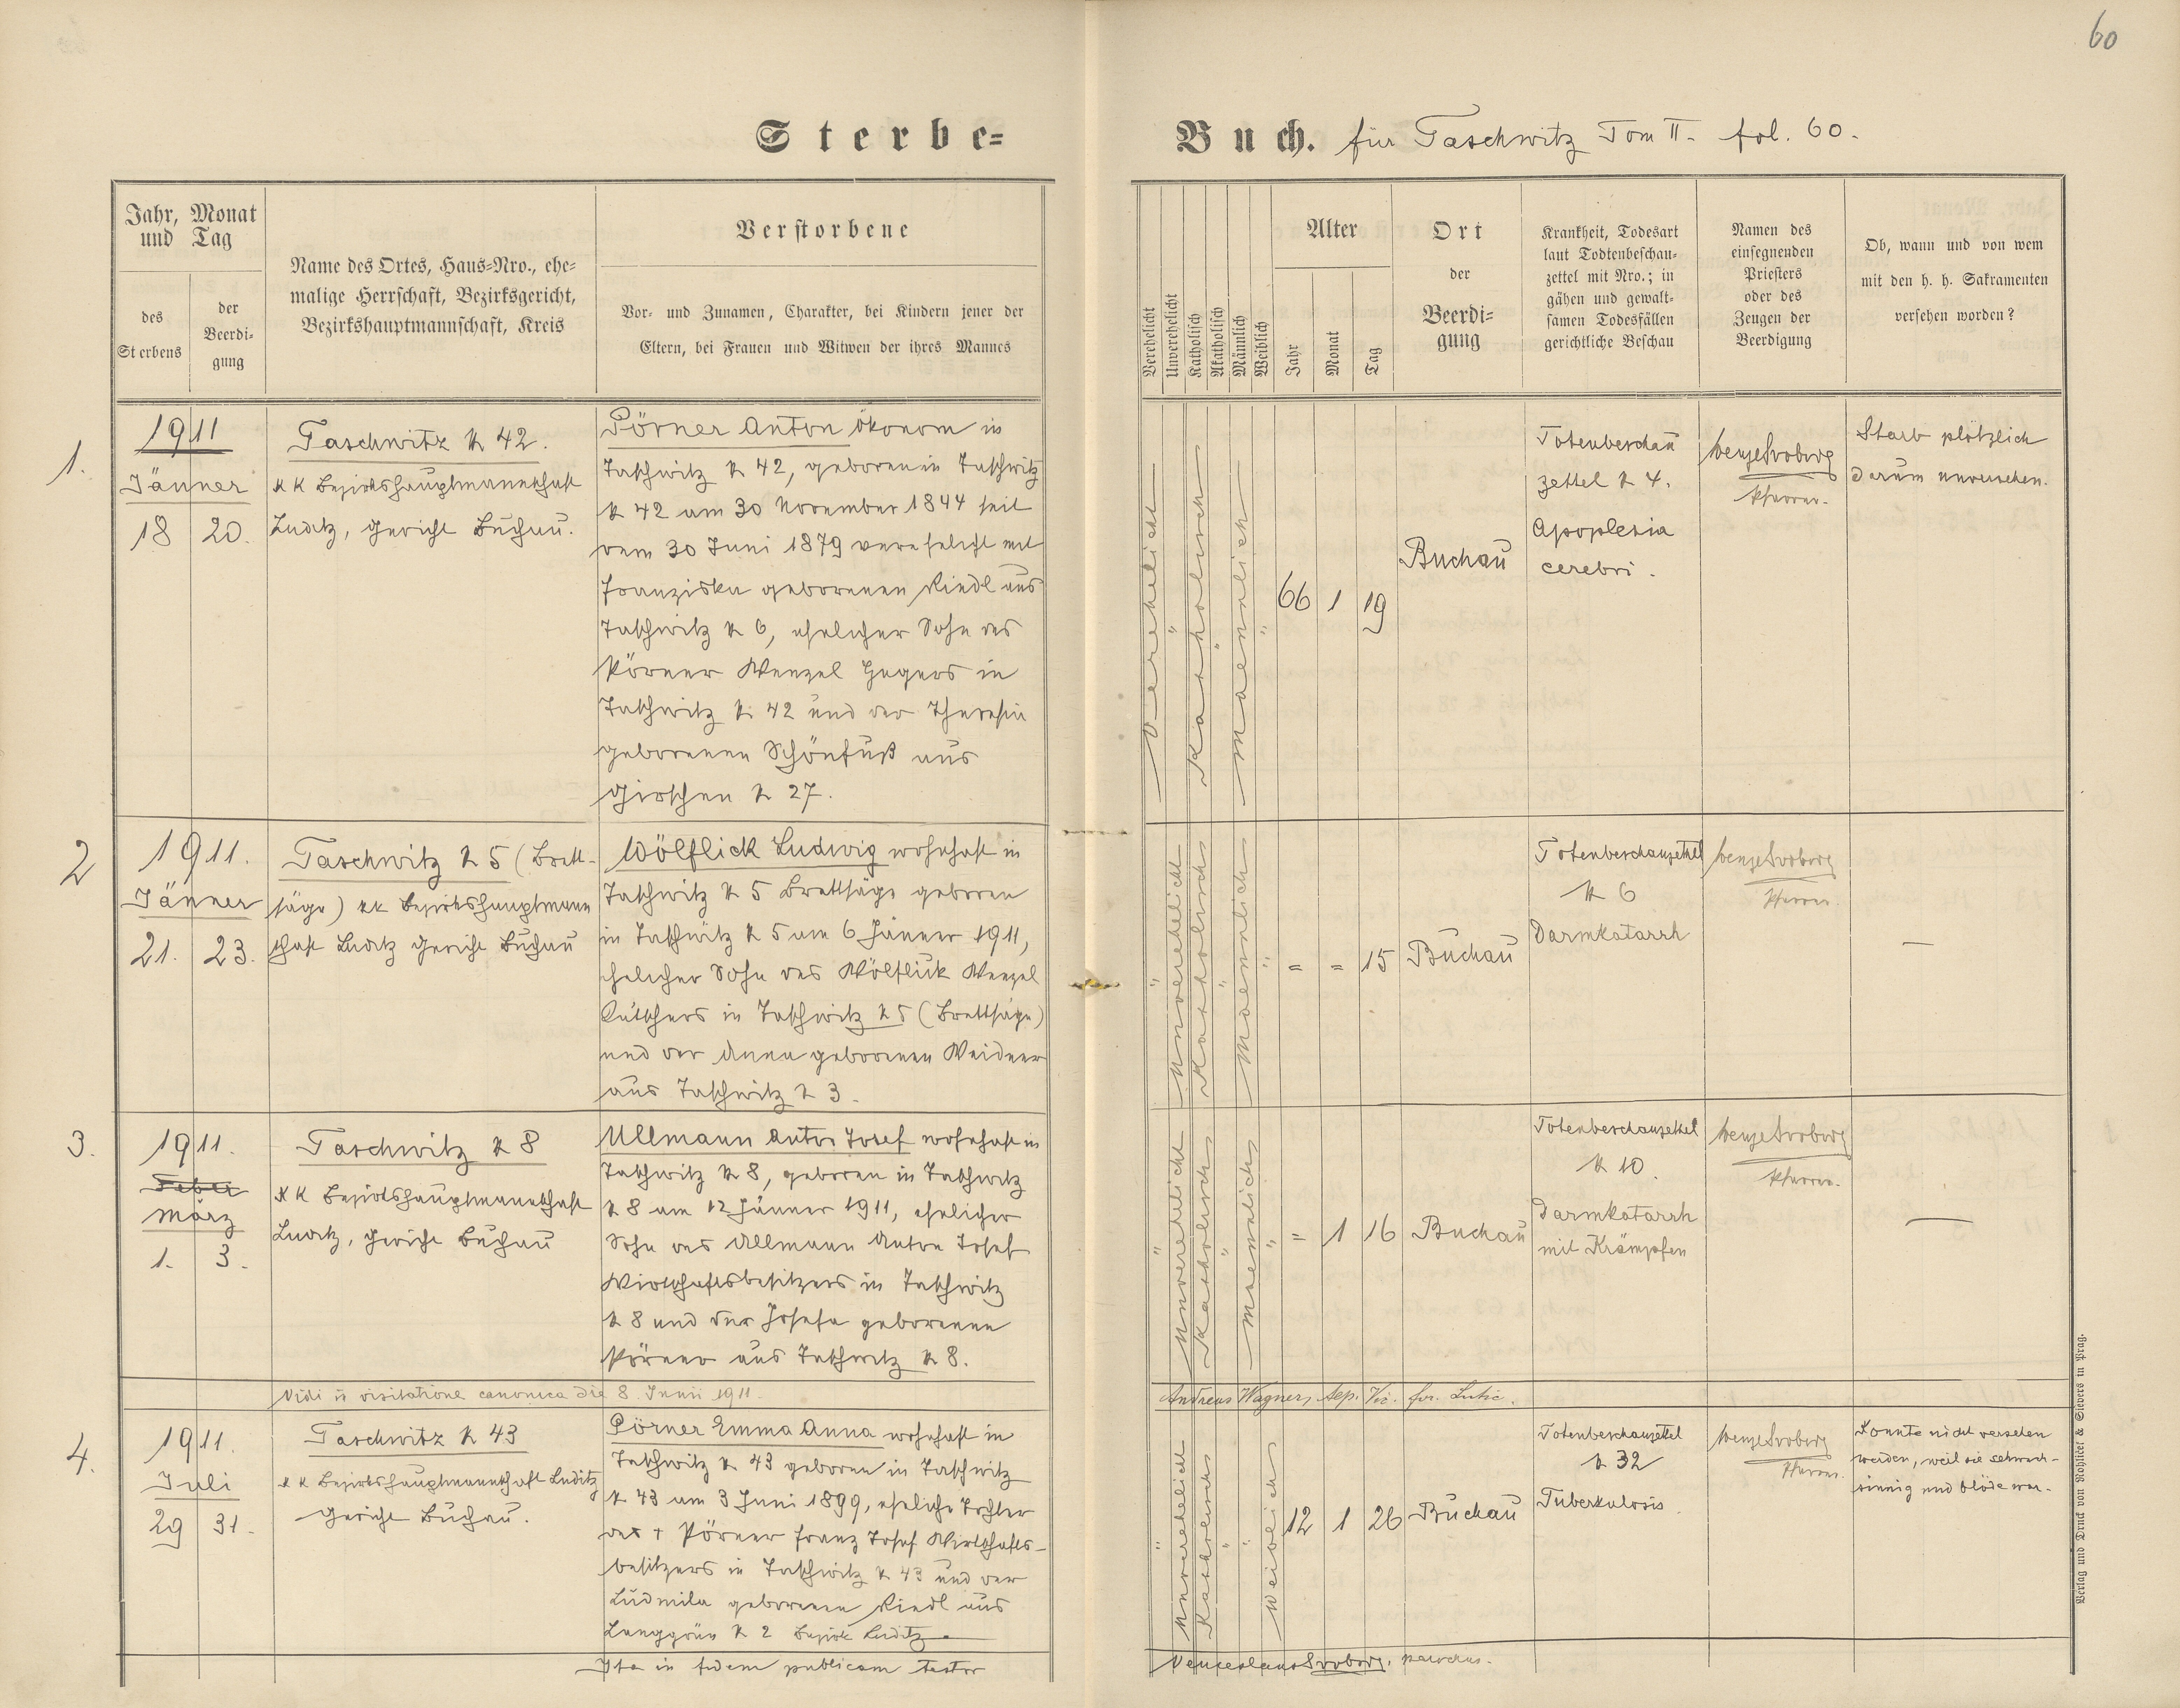 60
Sterbe=
Buch. für Taschwitz Tom II. fol. 60.
Jahr, Monat
und Tag
des
Sterbens
der
Beerdi=
gung
Name des Ortes, Haus=Nro., ehe=
malige Herrschaft, Bezirksgericht,
Bezirkshauptmannschaft, Kreis
Verstorbene
Vor= und Zunamen, Charakter, bei Kindern jener der
Eltern, bei Frauen und Witwen der ihres Mannes
Verehelicht
Unverehelicht
Katholisch
Akatholisch
Männlich
Weiblich
Alter
Jahr
Monat
Tag
Ort
der
Beerdi=
gung
Krankheit, Todesart
laut Todtenbeschau=
zettel mit Nro.; in
gähen und gewalt=
samen Todesfällen
gerichtliche Beschau
Namen des
einsegnenden
Priesters
oder des
Zeugen der
Beerdigung
Ob, wann und von wem
mit den h. h. Sakramenten
versehen worden?
1.
1911
Jänner
18 20.
Taschwitz N 42.
KK Bezirkshauptmannschaft
Luditz, Gericht Buchau.
Pörner Anton Ökonom in
Taschwitz N 42, geboren in Taschwitz
N 42 am 30 November 1844 seit
dem 30 Juni 1879 verehelicht mit
Franziska geborenen Riedl aus
Taschwitz N 6, ehelicher Sohn des
Pörner Wenzel Hegers in
Taschwitz N 42 und der Theresia
geborenen Schönfuß aus
Girschen N 27.
Verehelicht
"
Katholisch
"
Maennlich
"
66 1 19
Buchau
Totenbeschau
zettel N 4.
Apoplexia
cerebri.
Wenzel Svoboda
Pfarrer.
Starb plötzlich
darum unversehen.
2
1911.
Jänner
21. 23.
Taschwitz N 5 (Brett-
säge) KK Bezirkshauptmann
schaft Luditz Gericht Buchau
Wölflick Ludwig wohnhaft in
Taschwitz N 5 Brettsäge geboren
in Taschwitz N 5 am 6 Jänner 1911,
ehelicher Sohn des Wölflick Wenzel
Kutschers in Taschwitz N 5 (Brettsäge)
und der Anna geborenen Weidner
aus Taschwitz N 3.
"
Unverehelicht
Katholisch
"
Maennlich
"
= = 15
Buchau
Totenbeschauzettel
N 6
Darmkatarrh
Wenzel Svoboda
Pfarrer.
—
3.
1911.
Feber
März
1. 3.
Taschwitz N 8
KK Bezirkshauptmannschaft
Luditz, Gericht Buchau
Ullmann Anton Josef wohnhaft in
Taschwitz N 8, geboren in Taschwitz
N 8 am 12 Jänner 1911, ehelicher
Sohn des Ullmann Anton Josef
Wirtschaftsbesitzers in Taschwitz
N 8 und der Josefa geborenen
Pörner aus Taschwitz N 8.
"
Unverehelicht
Katholisch
"
Maennlich
"
= 1 16
Buchau
Totenbeschauzettel
N 10.
Darmkatarrh
mit Krämpfen
Wenzel Svoboda
Pfarrer.
—
Vidi in visitatione canonica die 8. Junii 1911.
Andreas Wagner, Aep. Vic. for. Lutic.
4.
1911.
Juli
29 31.
Taschwitz N 43
KK Bezirkshauptmannschaft Luditz
Gericht Buchau.
Pörner Emma Anna wohnhaft in
Taschwitz N 43 geboren in Taschwitz
N 43 am 3 Juni 1899, eheliche Tochter
des † Pörner Franz Josef Wirtschafts-
besitzers in Taschwitz N 43 und der
Ludmila geborenen Riedl aus
Langgrün N 2 Bezirk Luditz.
"
Unverehelicht
Katholisch
"
"
Weiblich
12 1 26
Buchau
Totenbeschauzettel
N 32
Tuberkulosis
Wenzel Svoboda
Pfarrer.
Konnte nicht versehen
werden, weil sie schwach-
sinnig und blöde war.
Ita in fidem publicam testor
Venceslaus Svoboda, parochus.
Verlag und Druck von Rohlicek & Sievers in Prag.